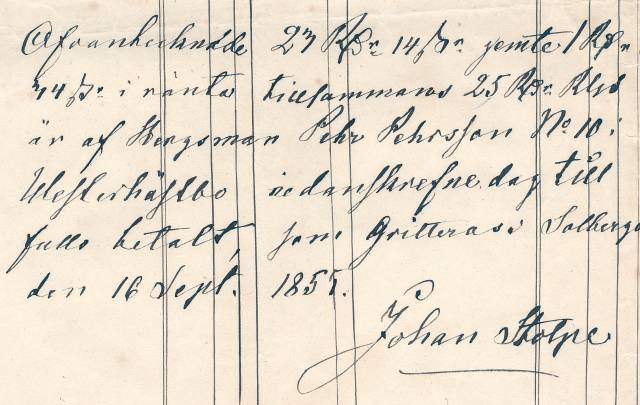 Ofvanteknade 23 Rdr 14 sk. jemte 1 Rdr
34 sk. i ränta tillsammans 25 Rdr Rgs
är af Bergsman Pehr Pehrsson No 10 i
Westerhästbo nedanskrefne dag till
fullo betalt, som qvitteras i Solberga
den 16 Sept. 1855.
Johan Stolpe